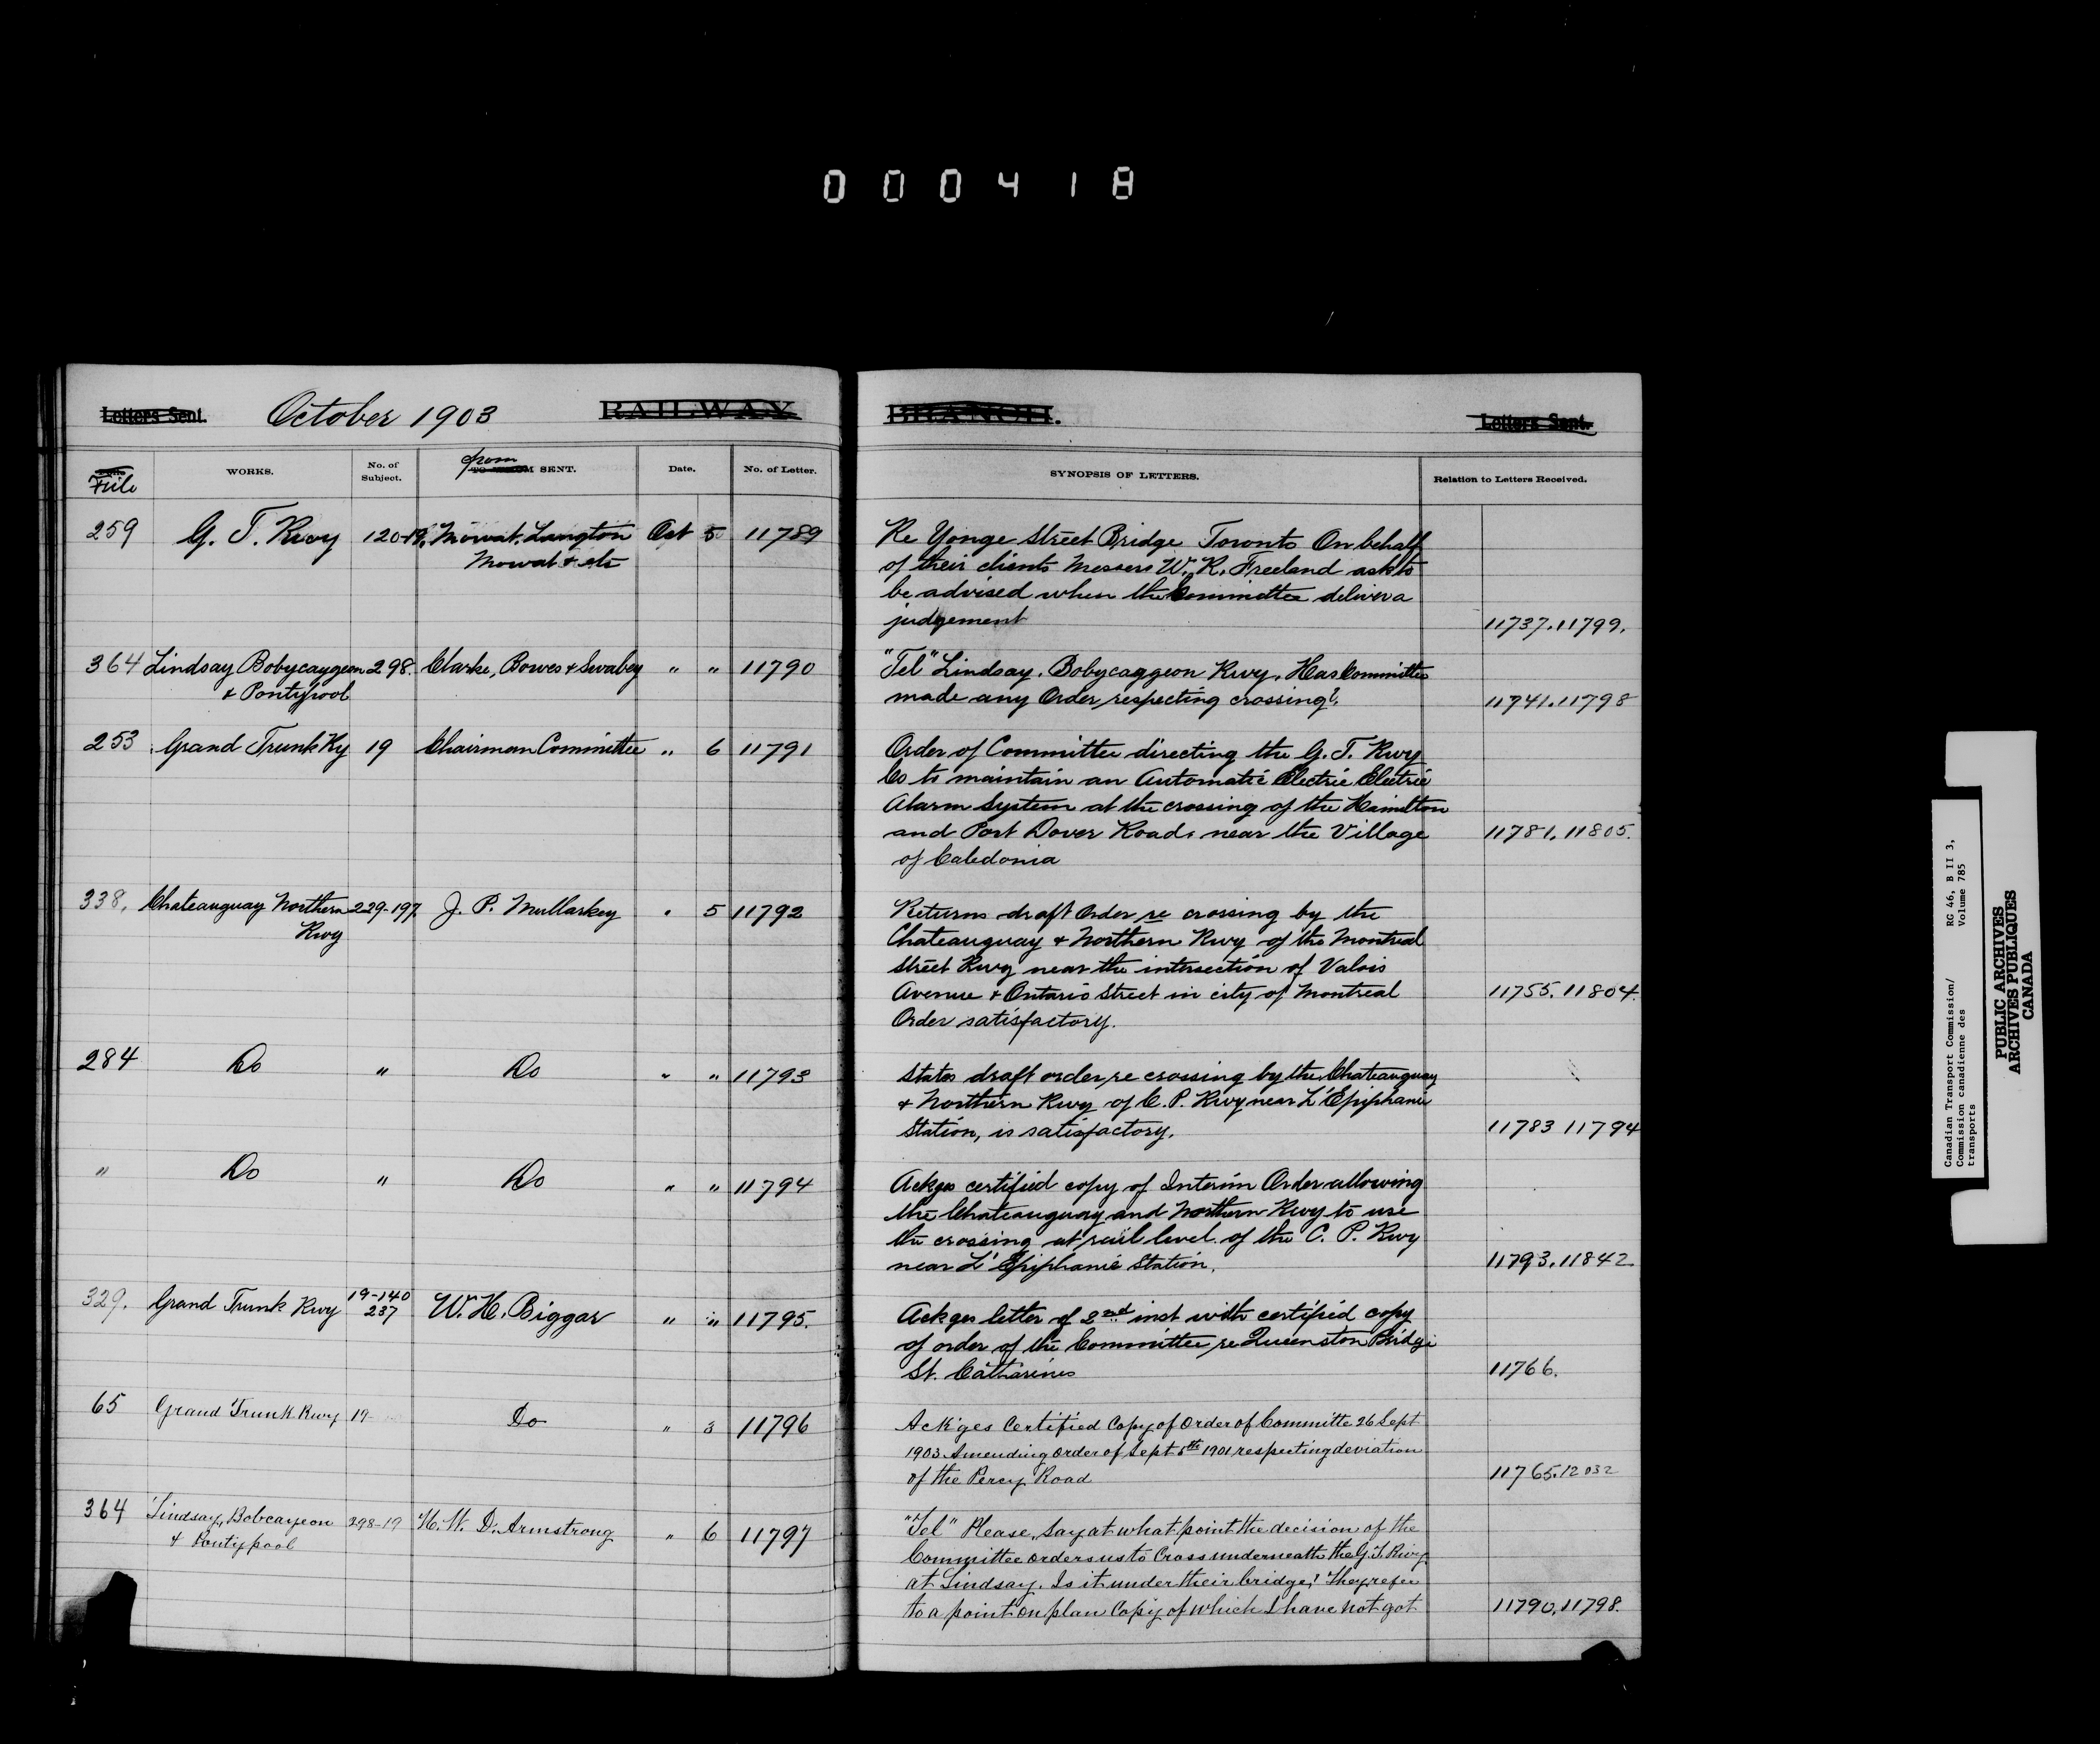 000418
Letters Sent. October 1903 RAILWAY BRANCH. Letters Sent.
File WORKS. No. of Subject. from SENT. Date. No. of Letter. SYNOPSIS OF LETTERS. Relation to Letters Received.
259 G. T. Rwy 120-19. Mowat, Langton Oct 5 11789 Re Yonge Street Bridge Toronto On behalf
Mowat & etc of their clients Messers W. R. Freeland ask to
be advised when the Committee deliver a
judgement 11737. 11799.
364 Lindsay Bobycaygeon 298. Clarke, Bowes & Swabey " " 11790 "Tel" Lindsay, Bobycaggeon Rwy. Has Committee
& Pontypool made any Order respecting crossing?. 11741. 11798
253 Grand Trunk Ry 19 Chairman Committee " 6 11791 Order of Committee directing the G. T. Rwy
Co to maintain an Automatic Electric Electric
Alarm System at the crossing of the Hamilton
and Port Dover Road, near the Village 11781. 11805.
of Caledonia
338. Chateauguay Northern 229-197. J. P. Mullarkey " 5 11792 Returns draft Order re crossing by the
Rwy Chateauguay & Northern Rwy of the Montreal
Street Rwy near the intersection of Valois
Avenue & Ontario Street in city of Montreal 11755. 11804.
Order satisfactory.
284 Do " Do " " 11793 States draft order re crossing by the Chateauguay
& Northern Rwy of C. P. Rwy near L'Epiphanie
Station, is satisfactory. 11783 11794
" Do " Do " " 11794 Ackgs certified copy of Interim Order allowing
the Chateauguay and Northern Rwy to use
the crossing at rail level of the C. P. Rwy
near L'Epiphanie Station. 11793. 11842.
329. Grand Trunk Rwy 19-140 237 W. H. Biggar " " 11795. Ackges letter of 2nd inst with certified copy
of order of the Committee re Queenston Bridge
St. Catharines 11766.
65 Grand Trunk Rwy 19- Do " 3 11796 Ack'ges Certified Copy of Order of Committe 26 Sept
1903 Amending order of Sept 5th 1901 respecting deviation
of the Percy Road 11765. 12032
364 Lindsay, Bobcaygeon 298-19 H. W. D. Armstrong " 6 11797 "Tel" Please, Say at what point the decision of the
& Pontypool Committee orders us to Cross underneath the G. T. Rwy
at Lindsay. Is it under their bridge? They refer
to a point on plan Copy of which I have not got 11790. 11798.
Canadian Transport Commission/ RG 46, B II 3,
Commission canadienne des Volume 785
transports
PUBLIC ARCHIVES
ARCHIVES PUBLIQUES
CANADA